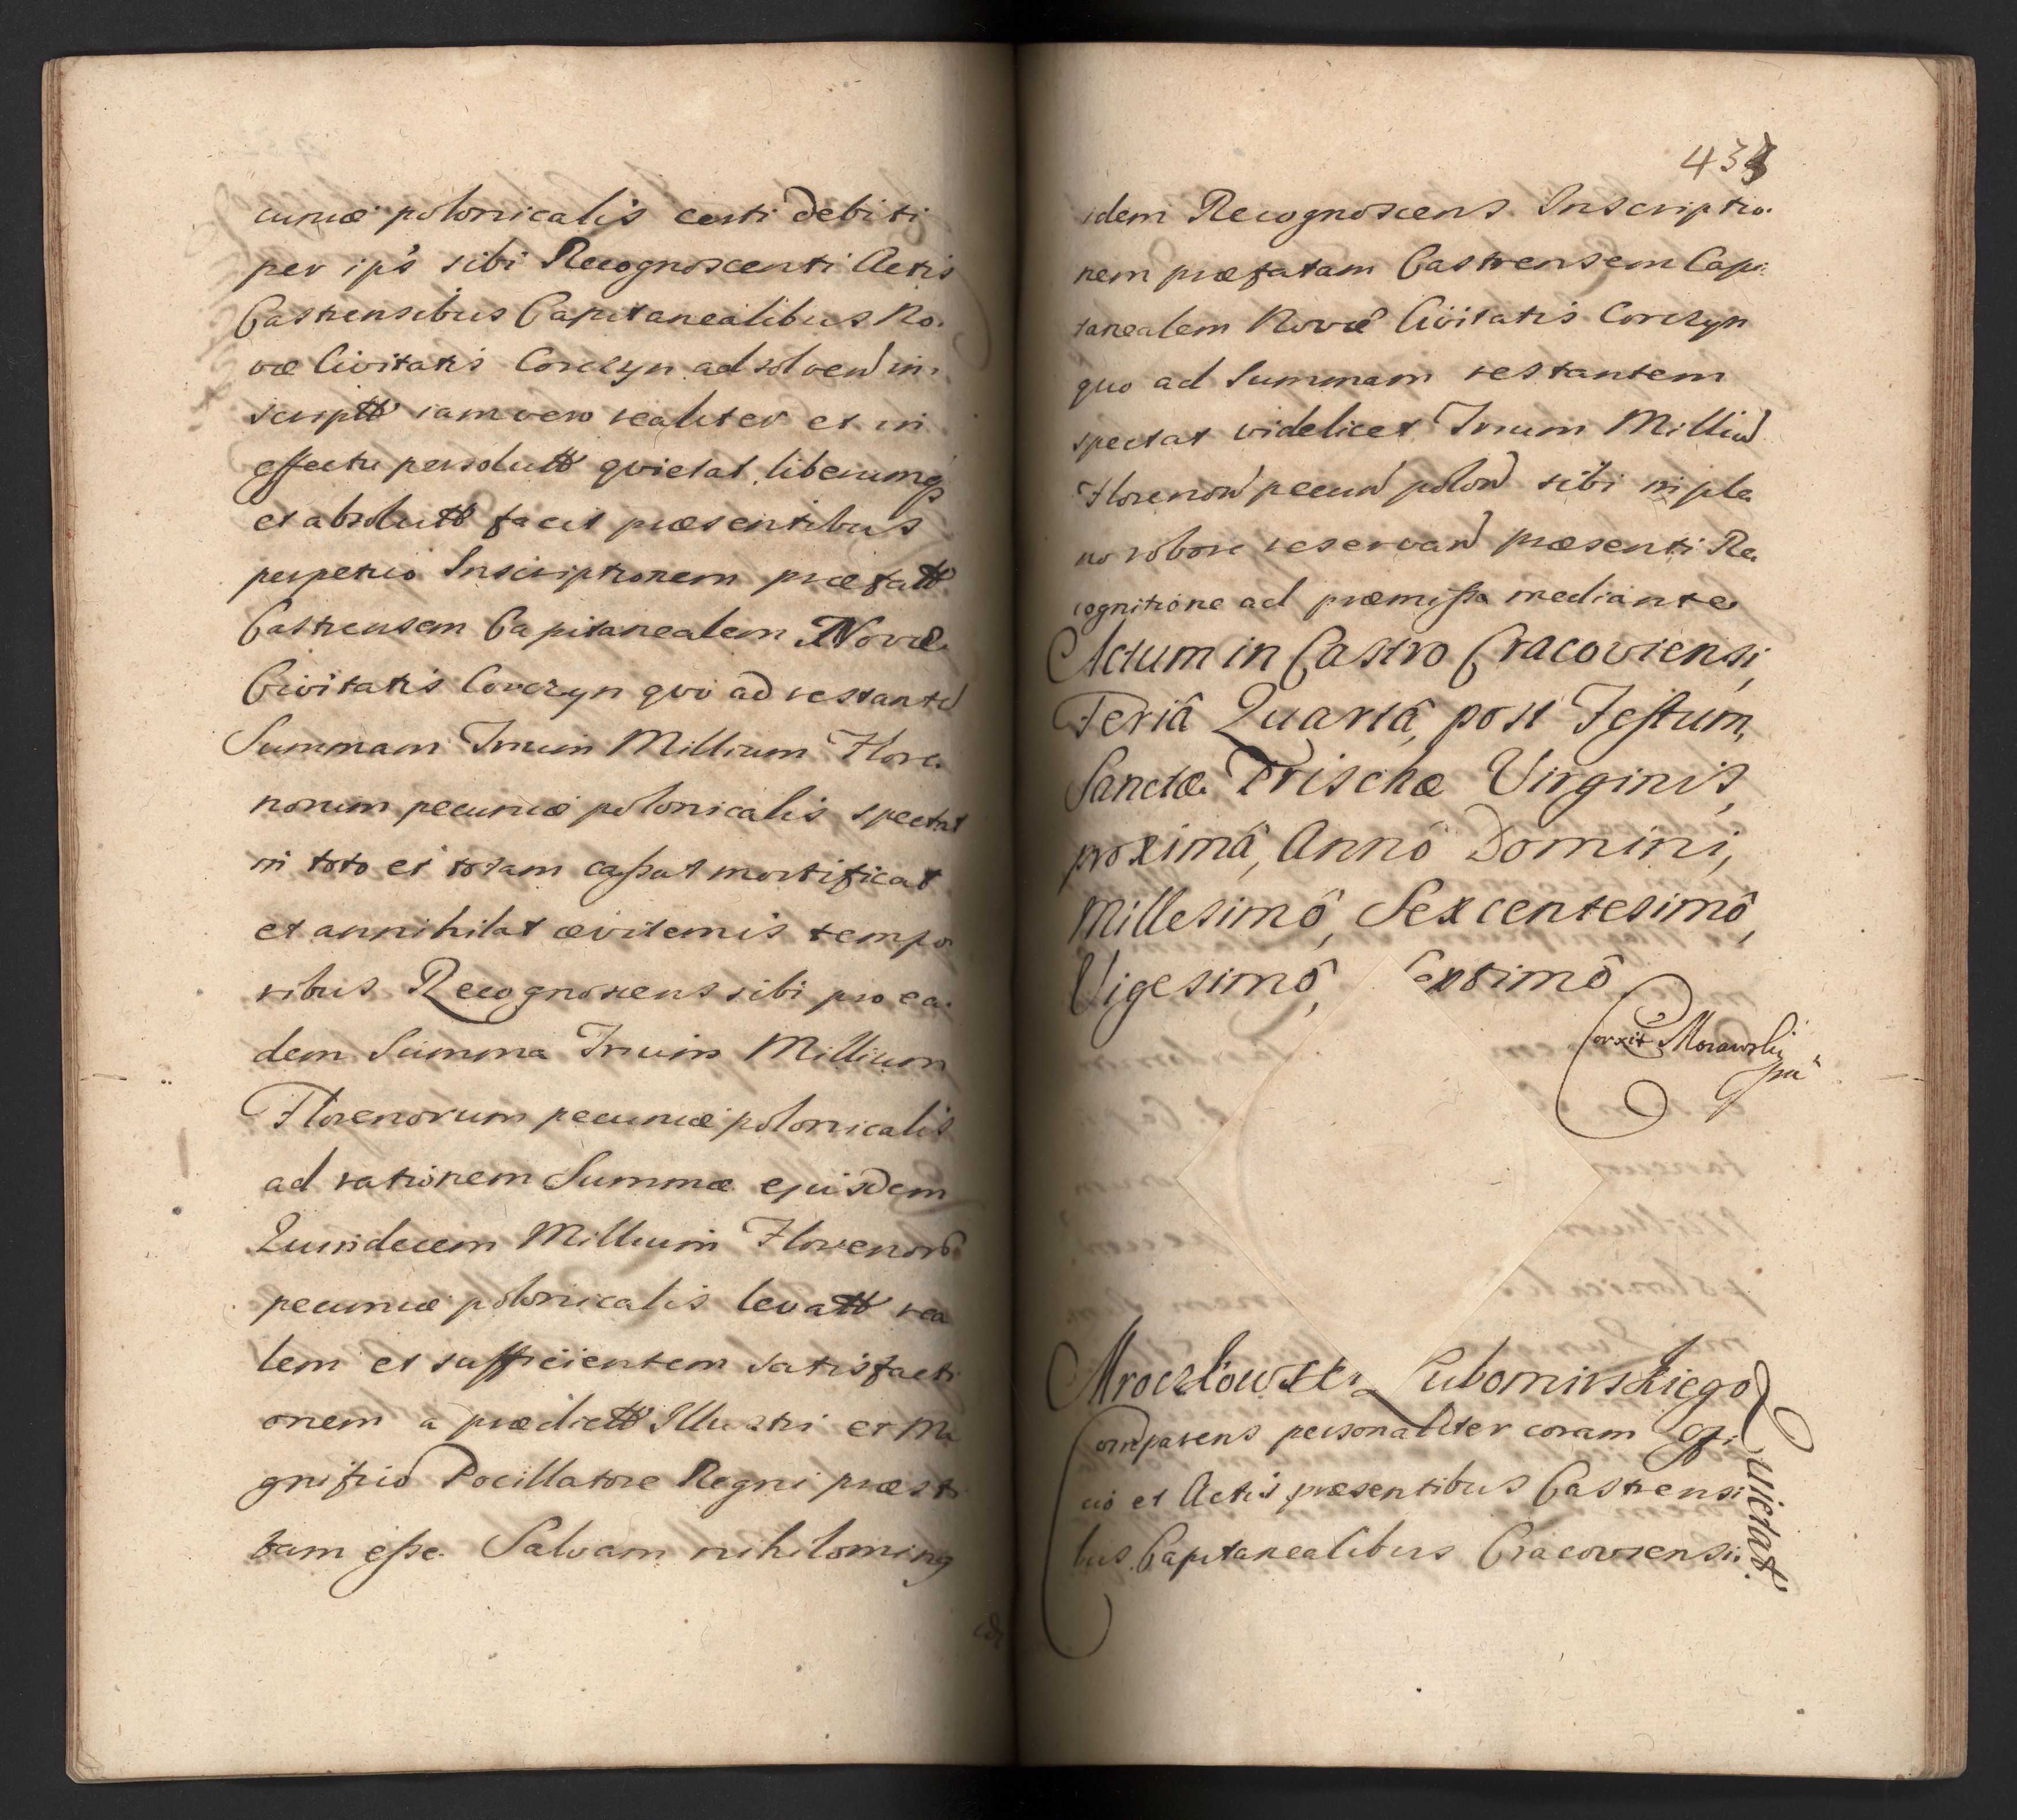 cuniæ polonicalis certi debiti
per ips sibi Recognoscenti Actis
Castrensibus Capitanealibus No.
væ Civitatis Corczyn ad solvend in,
script iam vero realiter et in
effectu persolutt quietat liberumq
et absolutt facit præsentibus
perpetuo Inscriptionem præfatt
Castrensem Capitanealem Novæ
Civitatis Corczyn quo ad restantē
Summam Trium Millium Flore.
norum pecuniæ polonicalis spectat
in toto et totam cassat mortificat
et annihilat æviternis tempo
ribus Recognoscens sibi pro ea.
dem Summa Trium Millium
Florenorum pecuniæ polonicalis
ad rationem Summæ ejusdem
Quindecem Millium Florenor
pecuniæ polonicalis levatt rea
lem et sufficientem satisfacti
onem a prædictt Illustri et Ma
gnifico Pocillatore Regni præsti
tam esse. Salvam nihilominq
439
idem Recognoscens Inscriptio.
nem præfatam Castrensem Capi.
tanealem Novæ Civitatis Corczyn
quo ad Summam restantem
spectat videlicet Trium Milliū
Florenorū pecun polon sibi in ple.
no robore reservan præsenti Re.
cognitione ad præmissa mediante
Actum in Castro Cracoviensi,
Feriâ Quartâ, post Festum,
Sanctæ Prischæ Virginis,
proximâ, Annô Domini,
Millesimô, Sexcentesimô,
Vigesimô, Septimô
Corxit Morawski
Mroczkowski Lubomirskiego
Quietat
Comparens personaliter coram Offi
cio et Actis præsentibus Castrensi
bus Capitanealibus Cracoviensi